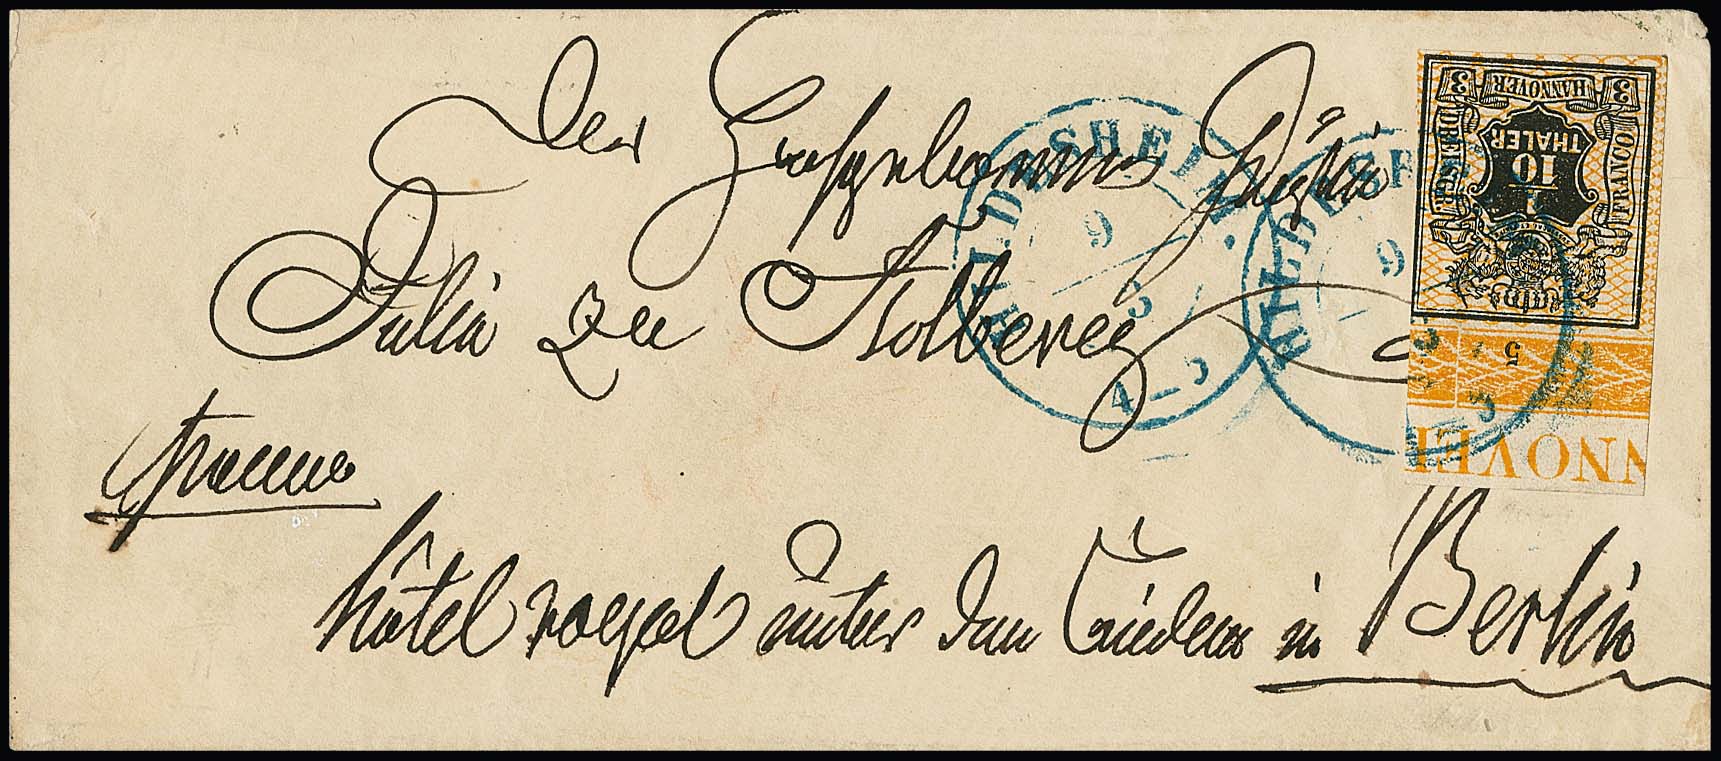 Der Hochgebornen Gräfin
Julia zu Stolberg
franco
hôtel royal unter den Linden in Berlin
HILDESHEIM
9
3
4-5
HILDESHEIM
9
3
3 HANNOVER 3
DREI SGR.
FRANCO
1
10
THALER
5
NNOVE